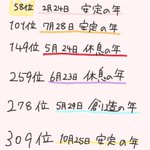 58位 2月24日 安定の年
101位 7月28日 安定の年
149位 5月24日 休息の年
259位 6月23日 休息の年
278位 5月29日 創造の年
309位 10月25日 安定の年